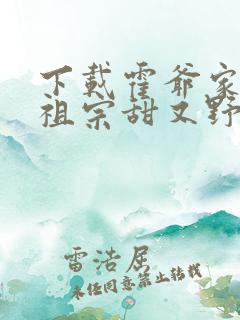 下载霍爷家
祖宗甜又野
雷洁居
未经同意禁止转载